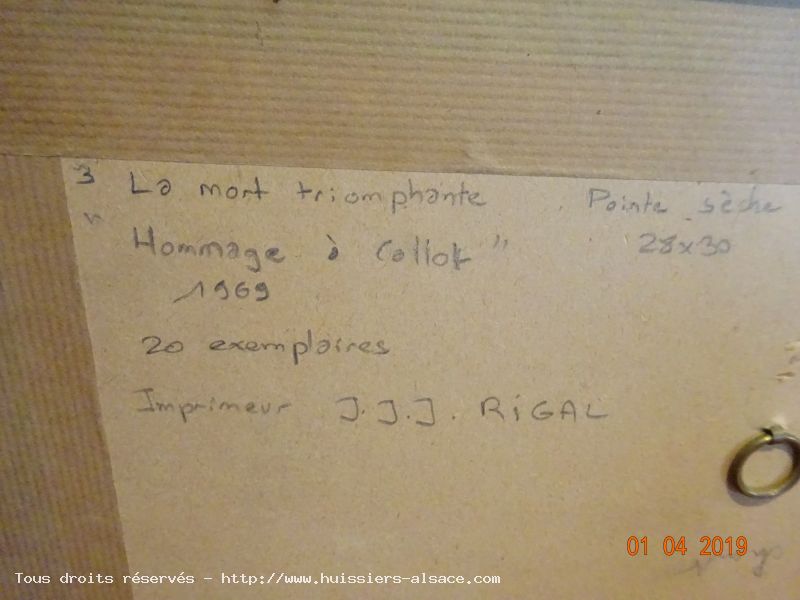 3 La mort triomphante Pointe sèche
" Hommage à Callot" 28x30
1969
20 exemplaires
Imprimeur J.J.J. RiGAL
01 04 2019
Tous droits réservés - http://www.huissiers-alsace.com